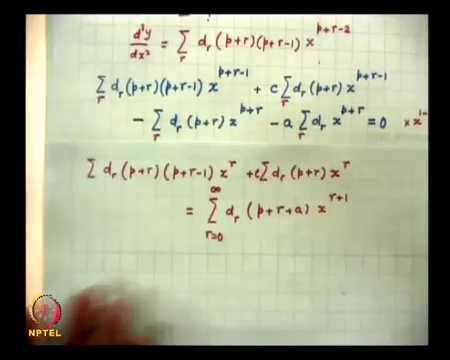 d²y/dx² = Σ_r d_r (p+r)(p+r-1) x^{p+r-2}
Σ_r d_r (p+r)(p+r-1) x^{p+r-1} + c Σ_r d_r (p+r) x^{p+r-1}
- Σ_r d_r (p+r) x^{p+r} - a Σ_r d_r x^{p+r} = 0 × x^{1-
Σ d_r (p+r)(p+r-1) x^r + c Σ d_r (p+r) x^r
= Σ_{r=0}^{∞} d_r (p+r+a) x^{r+1}
NPTEL